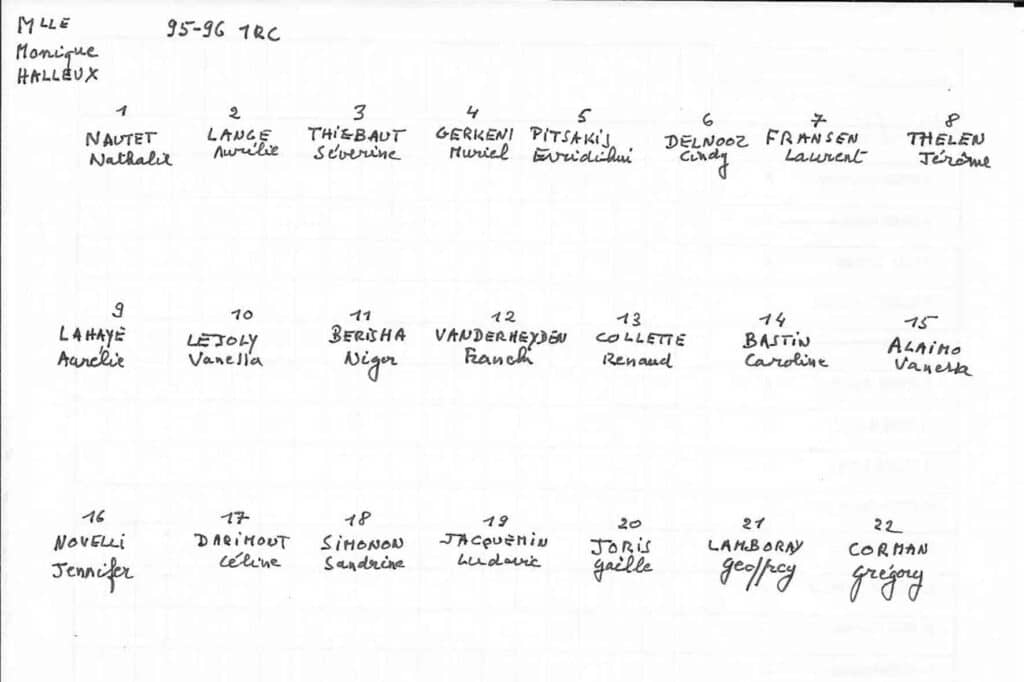 Mlle 95-96 1RC
Monique
HALLEUX
1 2 3 4 5 6 7 8
NAUTET LANGE THIEBAUT GERKENI PITSAKIS DELNOOZ FRANSEN THELEN
Nathalie Aurélie Séverine Muriel Evridihui Cindy Laurent Jérôme
9 10 11 12 13 14 15
LAHAYE LEJOLY BERISHA VANDERHEYDEN COLLETTE BASTIN ALAIMO
Aurélie Vanessa Niger Franck Renaud Caroline Vanessa
16 17 18 19 20 21 22
NOVELLI DARIMOUT SIMONON JACQUEMIN JORIS LAMBORAY CORMAN
Jennifer Céline Sandrine Ludovic Gaille Geoffrey Grégory